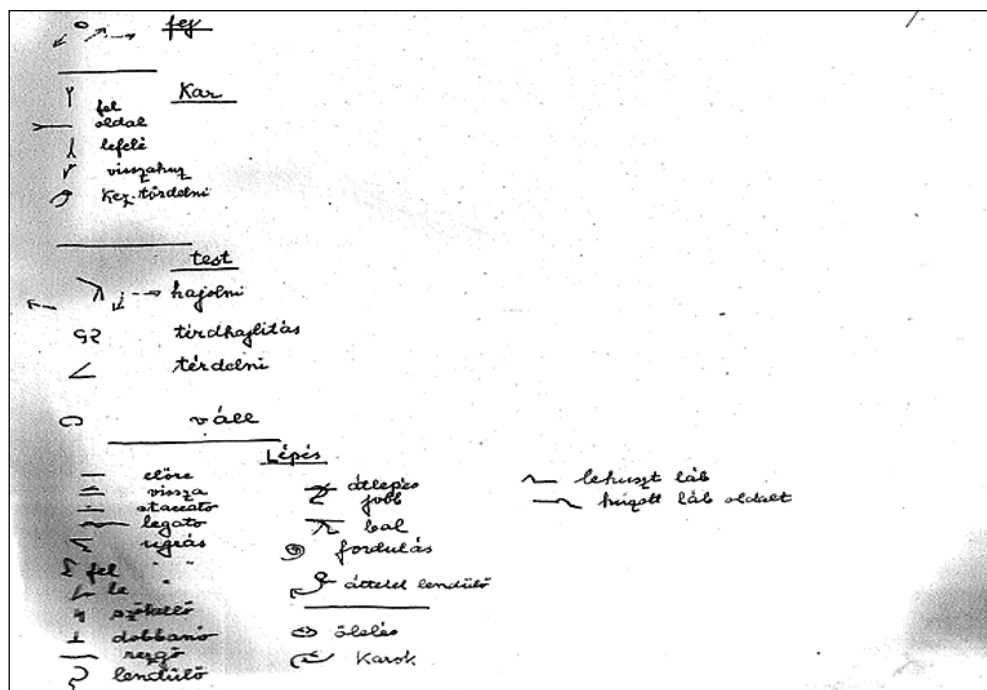 fej
Kar
fel
oldal
lefelé
visszahuz
Kez-tördelni
test
hajolni
térdhajlitás
térdelni
váll
Lépés
előre
vissza
staccato
legato
ugrás
fel " "
le
szökellő
dobbanó
rezgő
lendülő
átlepés
jobb
bal
fordulás
áttétel lendülő
ölelés
Karok
lehuszt láb
huzott láb oldalt